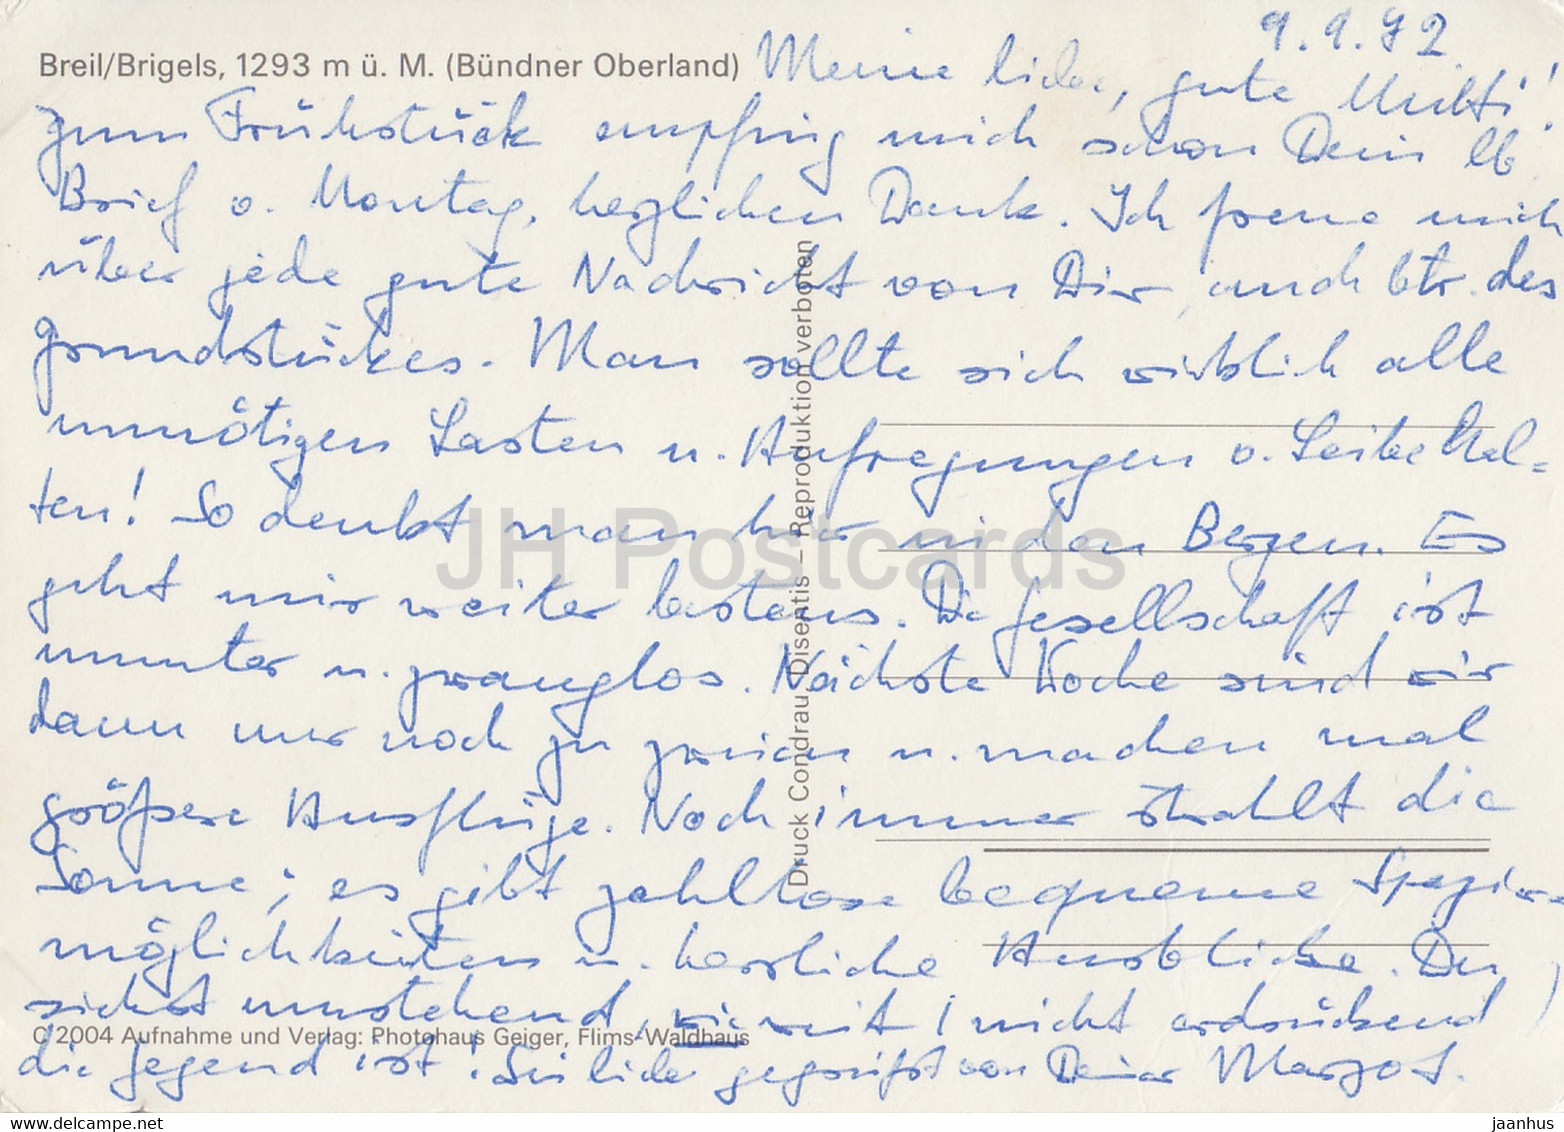 9.9.72
Breil/Brigels, 1293 m ü. M. (Bündner Oberland)
Meine liebe, gute Mutti!
zum Frühstück empfing mich schon Dein lb.
Brief v. Montag, herzlichen Dank. Ich freue mich
über jede gute Nachricht von Dir, auch betr. des
Grundstückes. Man sollte sich wirklich alle
unnötigen Lasten u. Aufregungen v. Leibe hal-
ten! So denkt man hier in den Bergen. Es
geht mir weiter bestens. Die Gesellschaft ist
munter u. zwanglos. Nächste Woche sind wir
dann nur noch zu zweien u. machen mal
größere Ausflüge. Noch immer strahlt die
Sonne; es gibt zahllose bequeme Spazier-
möglichkeiten u. herrliche Ausblicke. Du
siehst umstehend, wie weit (nicht erdrückend)
die Gegend ist! Sei lieb gegrüßt von Deiner Margot.
Druck Condrau, Disentis – Reproduktion verboten
© 2004 Aufnahme und Verlag: Photohaus Geiger, Flims-Waldhaus
JH Postcards
www.delcampe.net
jaanhus